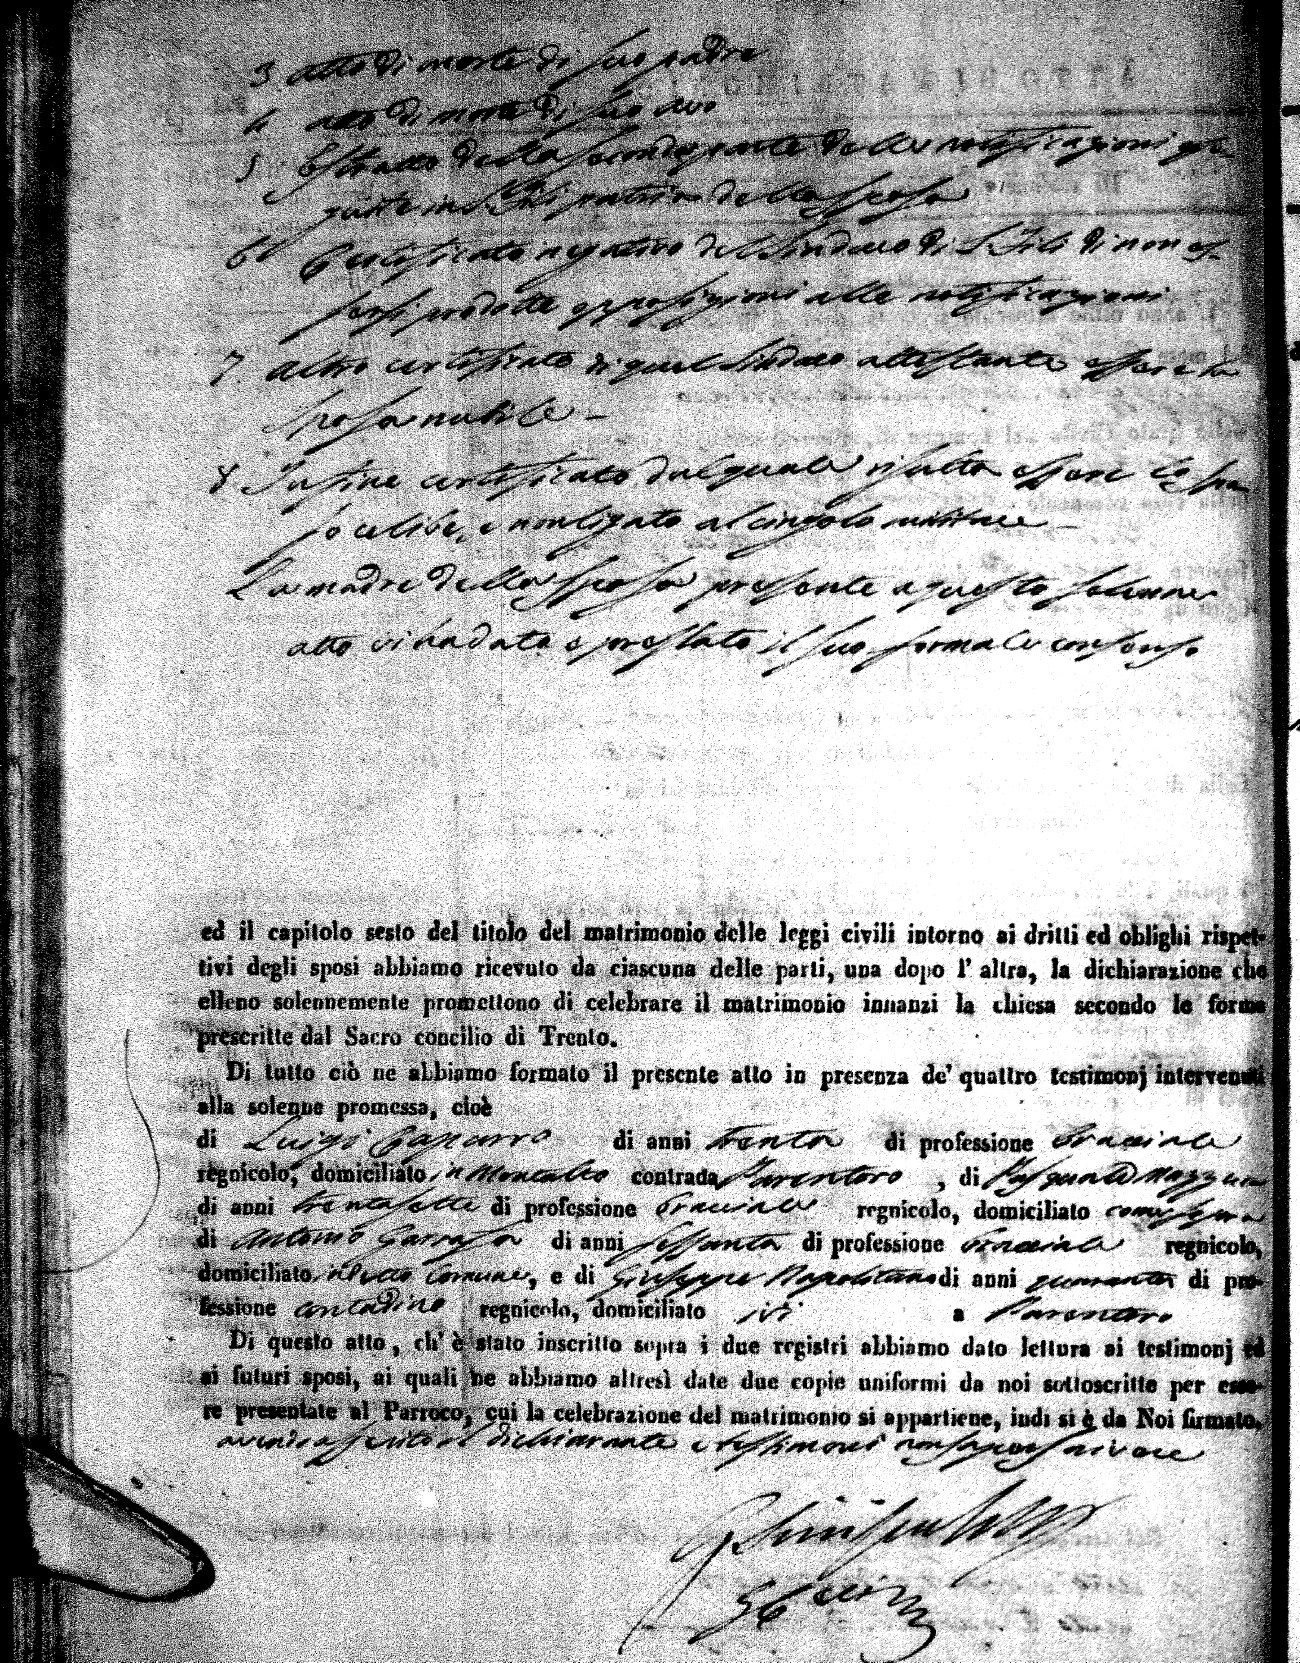 3 atto di morte di suo padre
4 atto di morte di suo avo
5 Estratto della seconda parte delle notificazioni
patria della sposa
6 Certificato negativo del Sindaco di S. Fili di non es-
sersi prodotte opposizioni alle notificazioni
7 Altro certificato di quel Sindaco attestante essere la
sposa nubile –
8 Infine certificato dal quale risulta essere lo spo-
so celibe, e non ligato al cingolo militare –
La madre della sposa presente a questo solenne
atto vi ha dato e prestato il suo formale consenso
ed il capitolo sesto del titolo del matrimonio delle leggi civili intorno ai dritti ed oblighi rispet-
tivi degli sposi abbiamo ricevuto da ciascuna delle parti, una dopo l' altra, la dichiarazione che
elleno solennemente promettono di celebrare il matrimonio innanzi la chiesa secondo le forme
prescritte dal Sacro concilio di Trento.
Di tutto ciò ne abbiamo formato il presente atto in presenza de' quattro testimonj intervenuti
alla solenne promessa, cioè
di Luigi di anni trenta di professione bracciale
regnicolo, domiciliato in Montalto contrada Parentoro , di Pasquale
di anni trentasette di professione bracciale regnicolo, domiciliato come sopra
di Antonio di anni sessanta di professione bracciale regnicolo,
domiciliato in detto Comune, e di Giuseppe Napolitano di anni quaranta di pro-
fessione contadino regnicolo, domiciliato ivi a Parentoro
Di questo atto , ch' è stato inscritto sopra i due registri abbiamo dato lettura ai testimonj ed
ai futuri sposi, ai quali ne abbiamo altresì date due copie uniformi da noi sottoscritte per esse-
re presentate al Parroco, cui la celebrazione del matrimonio si appartiene, indi si è da Noi firmato,
avendo asserito il dichiarante e testimoni non saper scrivere